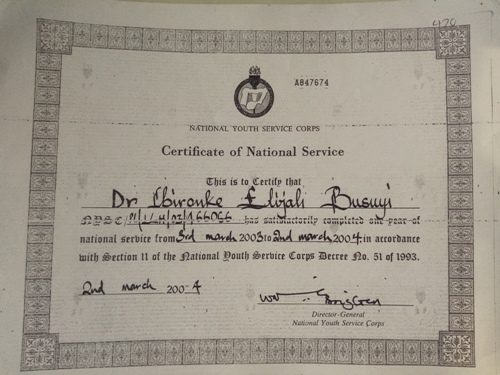 420
A847674
NATIONAL YOUTH SERVICE CORPS
Certificate of National Service
This is to Certify that
Dr. Ibironke Elijah Busuyi
has satisfactorily completed one year of
national service from 3rd march 2003 to 2nd march 2004 in accordance
with Section 11 of the National Youth Service Corps Decree No. 51 of 1993.
2nd march 2004
Director-General
National Youth Service Corps